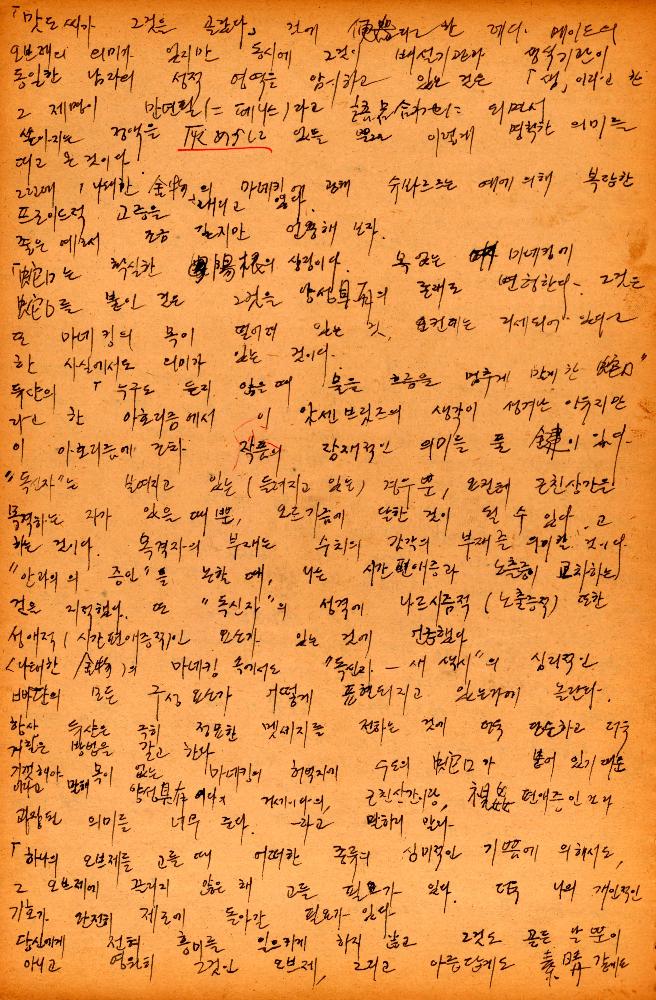 「맛도 씨가 그것을 골랐다」 것에 便器라고 한 데다. 메이드의
오브제의 의미가 있지만 동시에 그것이 배설기관과 생식기관이
동일한 남자의 성적 영역을 암시하고 있는 것은 「샘」이라고 한
그 제명이 만년필(= 페니스)라고
쏟아지는 정액을 있는 이렇게 명확한 의미를
띠고 온 것이다.
그런데 「나태한 金物」의 마네킹에 관해 슈바르츠는 예에 의해 복잡한
프로이드적 고증을 해내고 있다.
좋은 예로서 조금 길지만 인용해 보자.
「蛇口는 확실한 陽根의 상징이다. 목 없는 마네킹에
蛇口를 붙인 것은 그것을 양성具有의 존재로 변형한다. 그것은
또 마네킹의 목이 떨어져 있는 것, 요컨대는 거세되어 있다고
한 사실에서도 의미가 있는 것이다.
뒤샹의 「누구도 듣지 않을 때 물을 흐름을 멈추게 하는 蛇口"
라고 한 아포리즘에서 이 앗센브릿즈의 생각이 생겨난
이 아포리즘에 작품의 잠재적인 의미를 풀 鍵이 있다
"독신자"는 보여지고 있는 (들려지고 있는) 경우뿐, 요컨대 근친상간을
목격하는 자가 있을 때 뿐, 오르가즘에 달한 것이 될 수 있다 고
하는 것이다. 목격자의 부재는 수치의 감각의 부재를 의미할 것이다.
"안과의의 증인"을 논할 때, 나는 시간편애증과 노출증이 교차하는
것을 지적했다. 또 "독신자"의 성격에 나르시즘적 (노출증적) 또한
성애적 (시간편애증적)인 요소가 있는 것에 언급했다
<나태한 金物>의 마네킹 속에서도 "독신자 — 새색시"의 심리적인
빠단의 모든 구성 요소가 어떻게 표현되어지고 있는가에 놀란다.
항상 뒤샹은 극히 정묘한 멧세지를 전하는 것에 더욱 단순하고 더욱
적절한 방법을 갖고 한다
기껏해야 목이 없는 마네킹의 허벅지에 수도의 蛇口가 붙어 있기 때문
이라고 말해 양성具有 여자의 거세이다의, 근친상간이랑, 편애증인 그다
과장된 의미를 너무 준다. 라고 말하지 말라
「하나의 오브제를 고를 때 어떠한 종류의 심미적인 기쁨에 의해서도,
그 오브제에 끌리지 않은 채 고를 필요가 있다. 더욱 나의 개인적인
기호가 완전히 제로에 돌아간 필요가 있다
당신에게 전혀 흥미를 일으키게 하지 않고 그것도 고른 날 뿐이
아니고 영원히 그것인 오브제, 그리고 아름답게도 素晴 감에도